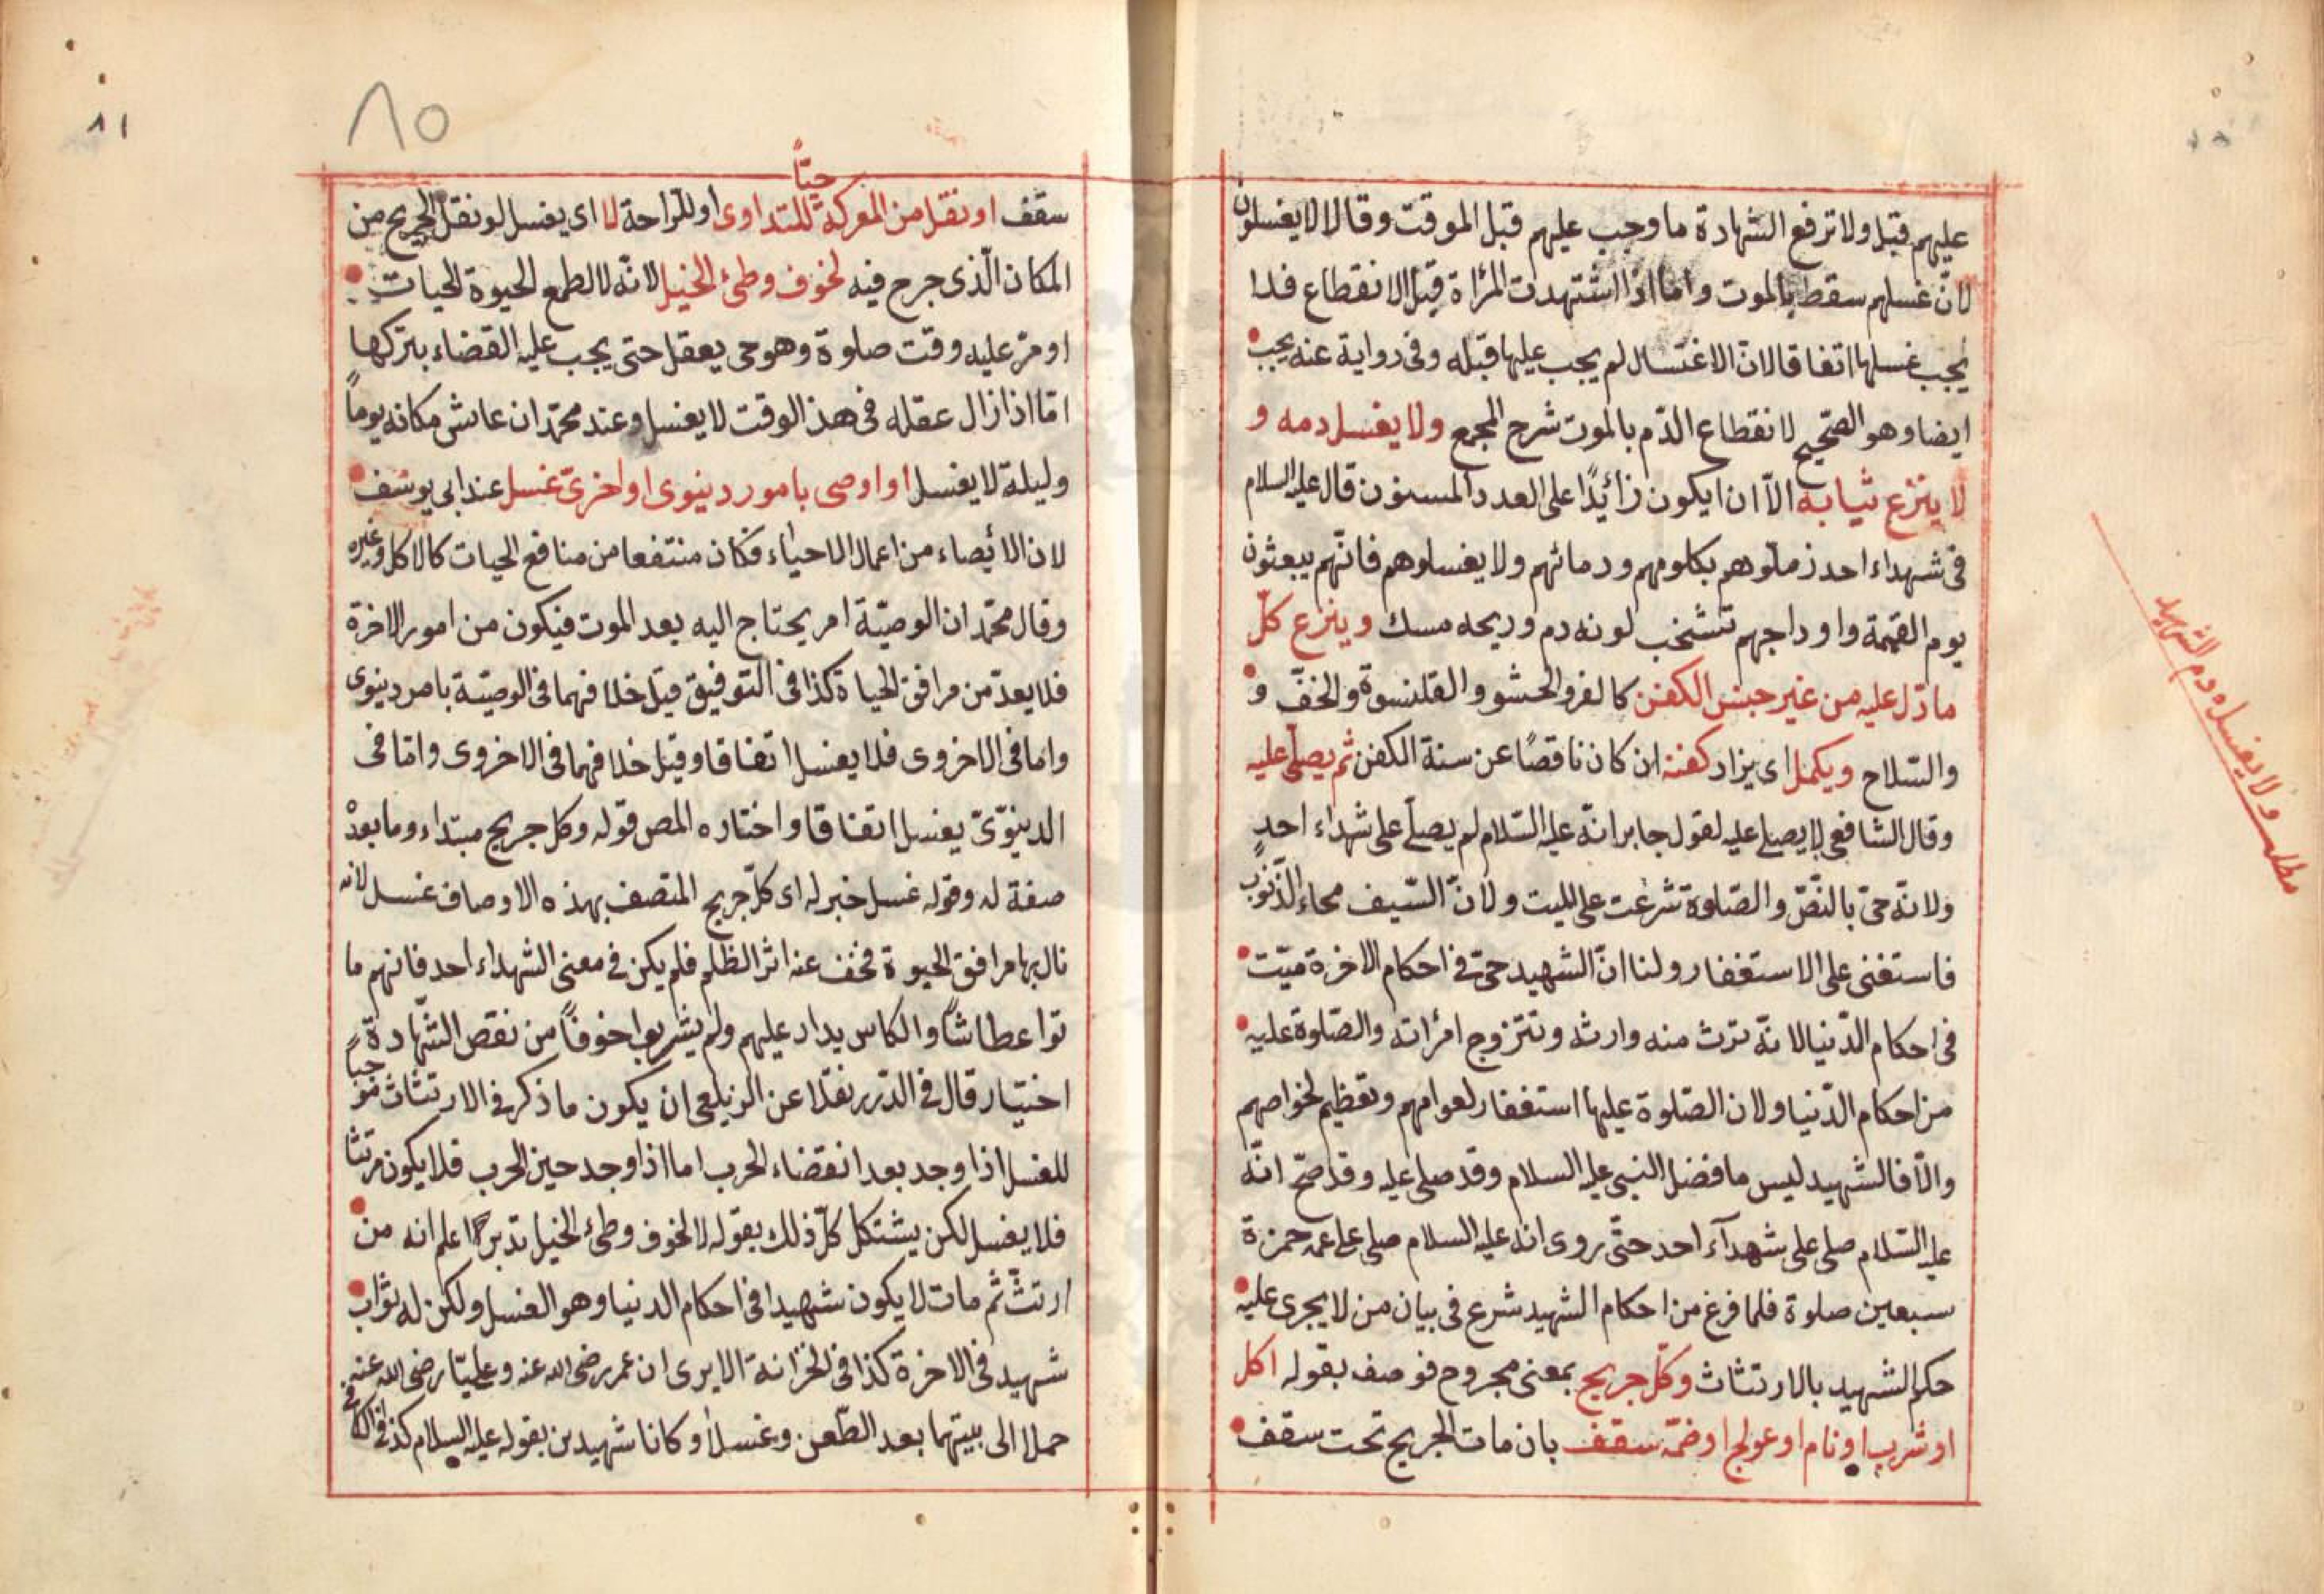 عليهم قبل ولا ترفع الشهادة ما وجب عليهم قبل الموقت وقالا لا يغسلون
لانّ غسلهم سقط بالموت واما اذا استشهدت المرأة قبل الانقطاع فلا
يجب غسلها اتفاقا لانّ الاغتسال لم يجب عليها قبله وفى رواية عنه يجب
ايضا وهو الصّحيح لانقطاع الدّم بالموت شرح المجمع ولا يغسل دمه و
لا ينزع ثيابه الاّ ان يكون زائدًا على العدد المسنون قال عليه السلام
فى شهداء احد زملوهم بكلومهم ودمائهم ولا يغسلوهم فانّهم يبعثون
يوم القيمة واوداجهم تشخب لونه دم وريحه مسك وينزع كلّ
ما دّل عليه من غير جنس الكفن كالفرو والحشو والقلنسوة والخفّ و
والسّلاح ويكمل اى يزاد كفنه ان كان ناقصًا عن سنة الكفن ثم يصلّى عليه
وقال الشافعى لا يصلى عليه لقول جابر انّه عليه السّلام لم يصلّ على شهداء احدٍ
ولانّه حىّ بالنّصّ والصّلوة شرعت على الميت ولانّ السّيف محاء الذّنوب
فاستغنى على الاستغفار ولنا انّ الشهيد حىّ فى احكام الاخرة ميّت
فى احكام الدّنيا لانّه ترث منه وارثه وتتزوج امرأته والصّلوة عليه
من احكام الدّنيا ولان الصّلوة عليها استغفار لعوامهم وتعظيم لخواصهم
والّا فالشهيد ليس ما فضل النبى عليه السلام وقد صلى عليه وقد صحّ انّه
عليه السّلام صلى على شهدآء احد حتّى روى انه عليه السلام صلى على عمه حمزة
سبعين صلوة فلما فرغ من احكام الشهيد شرع فى بيان من لا يجرى عليه
حكم الشهيد بالارتثاث وكلّ جريح بمعنى مجروح فوصف بقوله اكل
او شرب او نام او عولج او ضمّه سقف بان مات الجريح تحت سقف
مطلب ولا يغسل دم الشهيد
٨٥
٨١
حيّاً
سقف او نقل من المعركة للتداوى او للرّاحة لا اى يغسل لو نقل الجريح من
المكان الّذى جرح فيه لخوف وطئ الخيل لانّه لا لطمع الحيوة لحيات
او مرّ عليه وقت صلوة وهو حى يعقل حتى يجب عليه القضاء بتركها
امّا اذا زال عقله فى هذ الوقت لا يغسل وعند محمّد ان عاش مكانه يوماً
وليلة لا يغسل او اوصى بامور دينوى او اخرىّ غسل عند ابى يوسف
لان الائصاء من اعمال الاحياء فكان منتفعا من منافع الحيات كالاكل وغيره
وقال محمّد ان الوصيّة امر يحتاج اليه بعد الموت فيكون من امور الاخرة
فلا يعدّ من مرافق الحياة كذا فى التوفيق قيل خلافهما فى الوصيّة بامر دينوى
واما فى الاخروى فلا يغسل اتفاقا وقيل خلافهما فى الاخروى وامّا فى
الدينوّىّ يغسل اتفاقا واختاره المص قوله وكل جريح مبتداء وما بعدْ
صفة له وقوله غسل خبر له اى كلّ جريح المتصف بهذه الاوصاف غسل لانه
نال بها مرافق الحيوة فخف عنه اثر الظلم فلم يكن فى معنى الشهداء احد فانهم ما
توا عطاشاً والكاس يدار عليهم ولم يشربوا خوفاً من نقص الشّهادة
اختيار قال فى الدّرر نقلا عن الزيلعى ان يكون ما ذكر فى الارتثاث
للغسل اذا وجد بعد انقضاء الحرب اما اذا وجد حين الحرب فلا يكون مرتثا
فلا يغسل لكن يشتكل كلّ ذلك بقوله لا لخوف وطئ الخيل تدبر اعلم انه من
ارتثّ ثم مات لا يكون شهيدا فى احكام الدنيا وهو الغسل ولكن له ثواب
شهيد فى الاخرة كذا فى الخزانة الا يرى ان عمر رضى الله عنه وعليّا رضى الله عنه
حملا الى بيتهما بعد الطّعن وغسلا وكانا شهيدين بقوله عليه السلام كذا فى الكافى